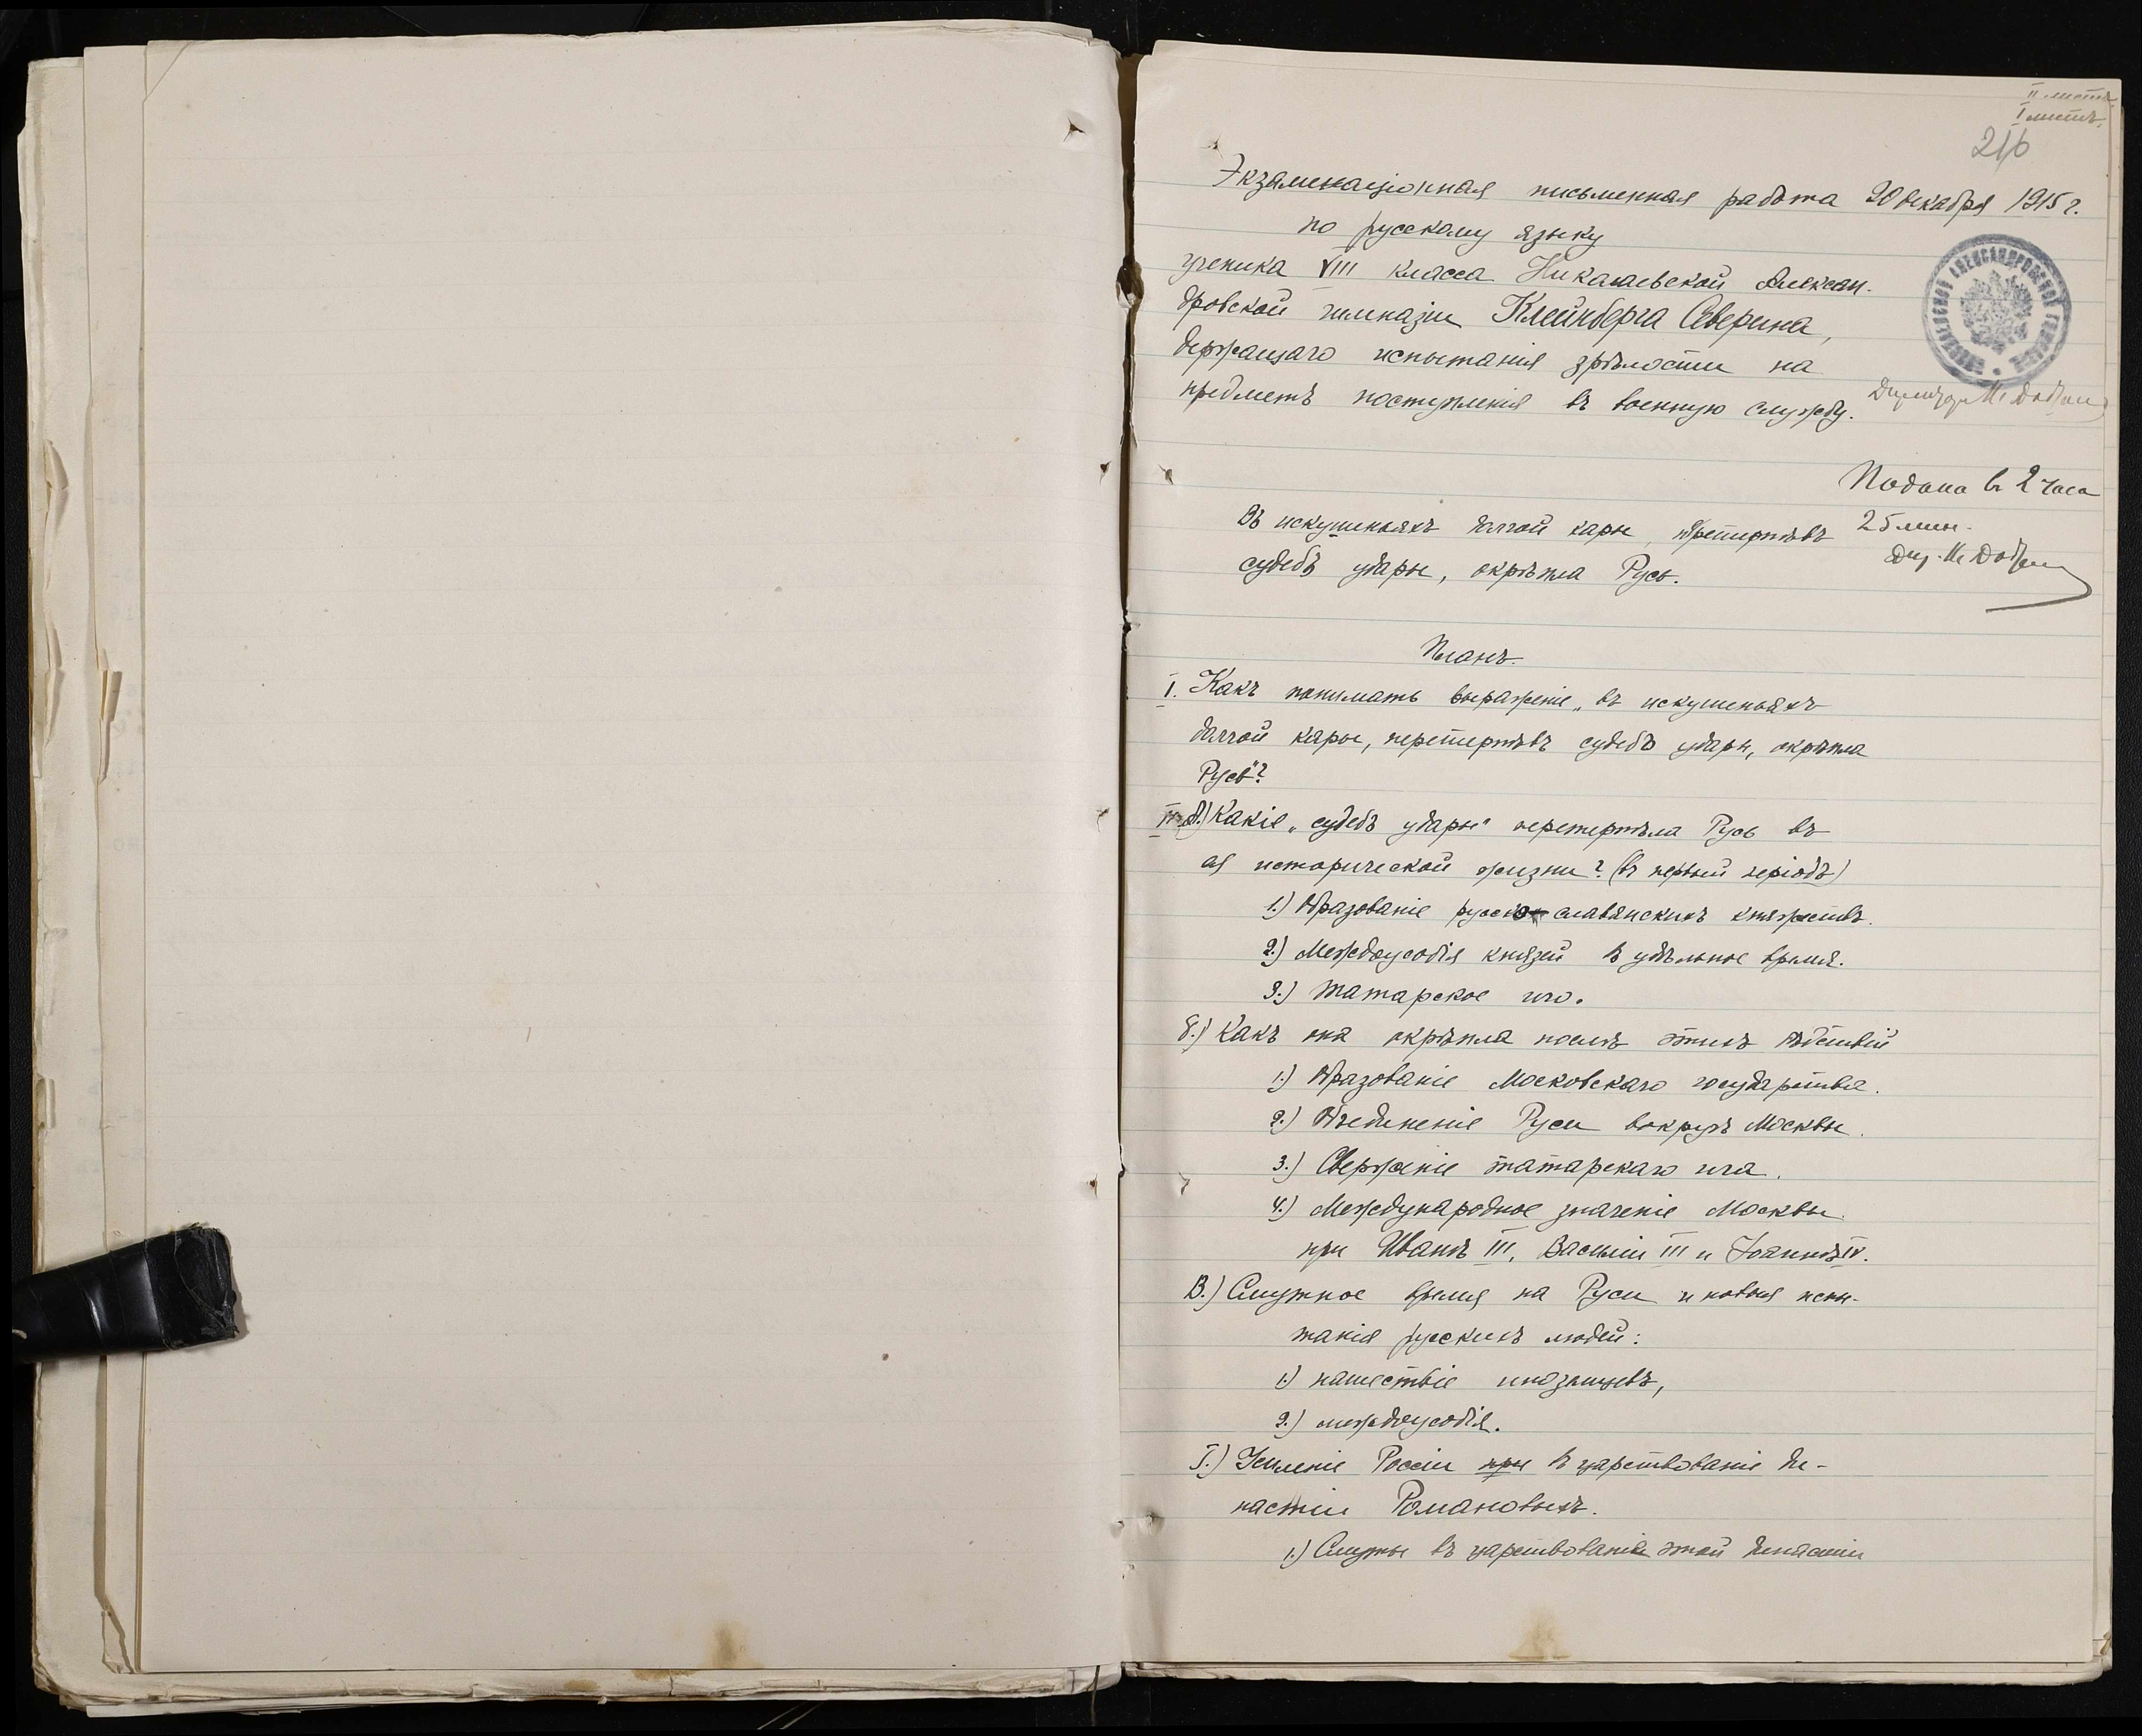 II листъ.
I листъ.
216
Экзаменаціонная письменная работа 20 декабря 1915 г.
по русскому языку
ученика VIII класса Николаевской Алексан-
дровской гимназіи Клейнберга Северина,
держащаго испытанія зрѣлости на
предметъ поступленія въ военную службу.
Подана въ 2 часа
25 мин.
Въ искушеньяхъ долгой кары, претерпѣвъ
судебъ удары, окрѣпла Русь.
Планъ.
I. Какъ понимать выраженіе „въ искушеньяхъ
долгой кары, перетерпѣвъ судебъ удары, окрѣпла
Русь"?
II. А.) Какіе „судебъ удары" перетерпѣла Русь въ
ея исторической жизни? (въ первый періодъ)
1.) Образованіе русско-славянскихъ княжествъ.
2.) Междоусобія князей въ удѣльное время.
3.) Татарское иго.
Б.) Какъ она окрѣпла послѣ этихъ бѣдствій
1.) Образованіе Московскаго государства.
2.) Объединеніе Руси вокругъ Москвы.
3.) Сверженіе татарскаго ига.
4.) Международное значеніе Москвы
при Иванѣ III, Василіи III и Іоаннѣ IV.
В.) Смутное время на Руси и новыя испы-
танія русскихъ людей:
1.) нашествіе иноземцевъ,
2.) междоусобія.
Г.) Усиленіе Россіи при въ царствованіе ди-
настіи Романовыхъ.
1.) Смуты въ царствованіе этой династіи